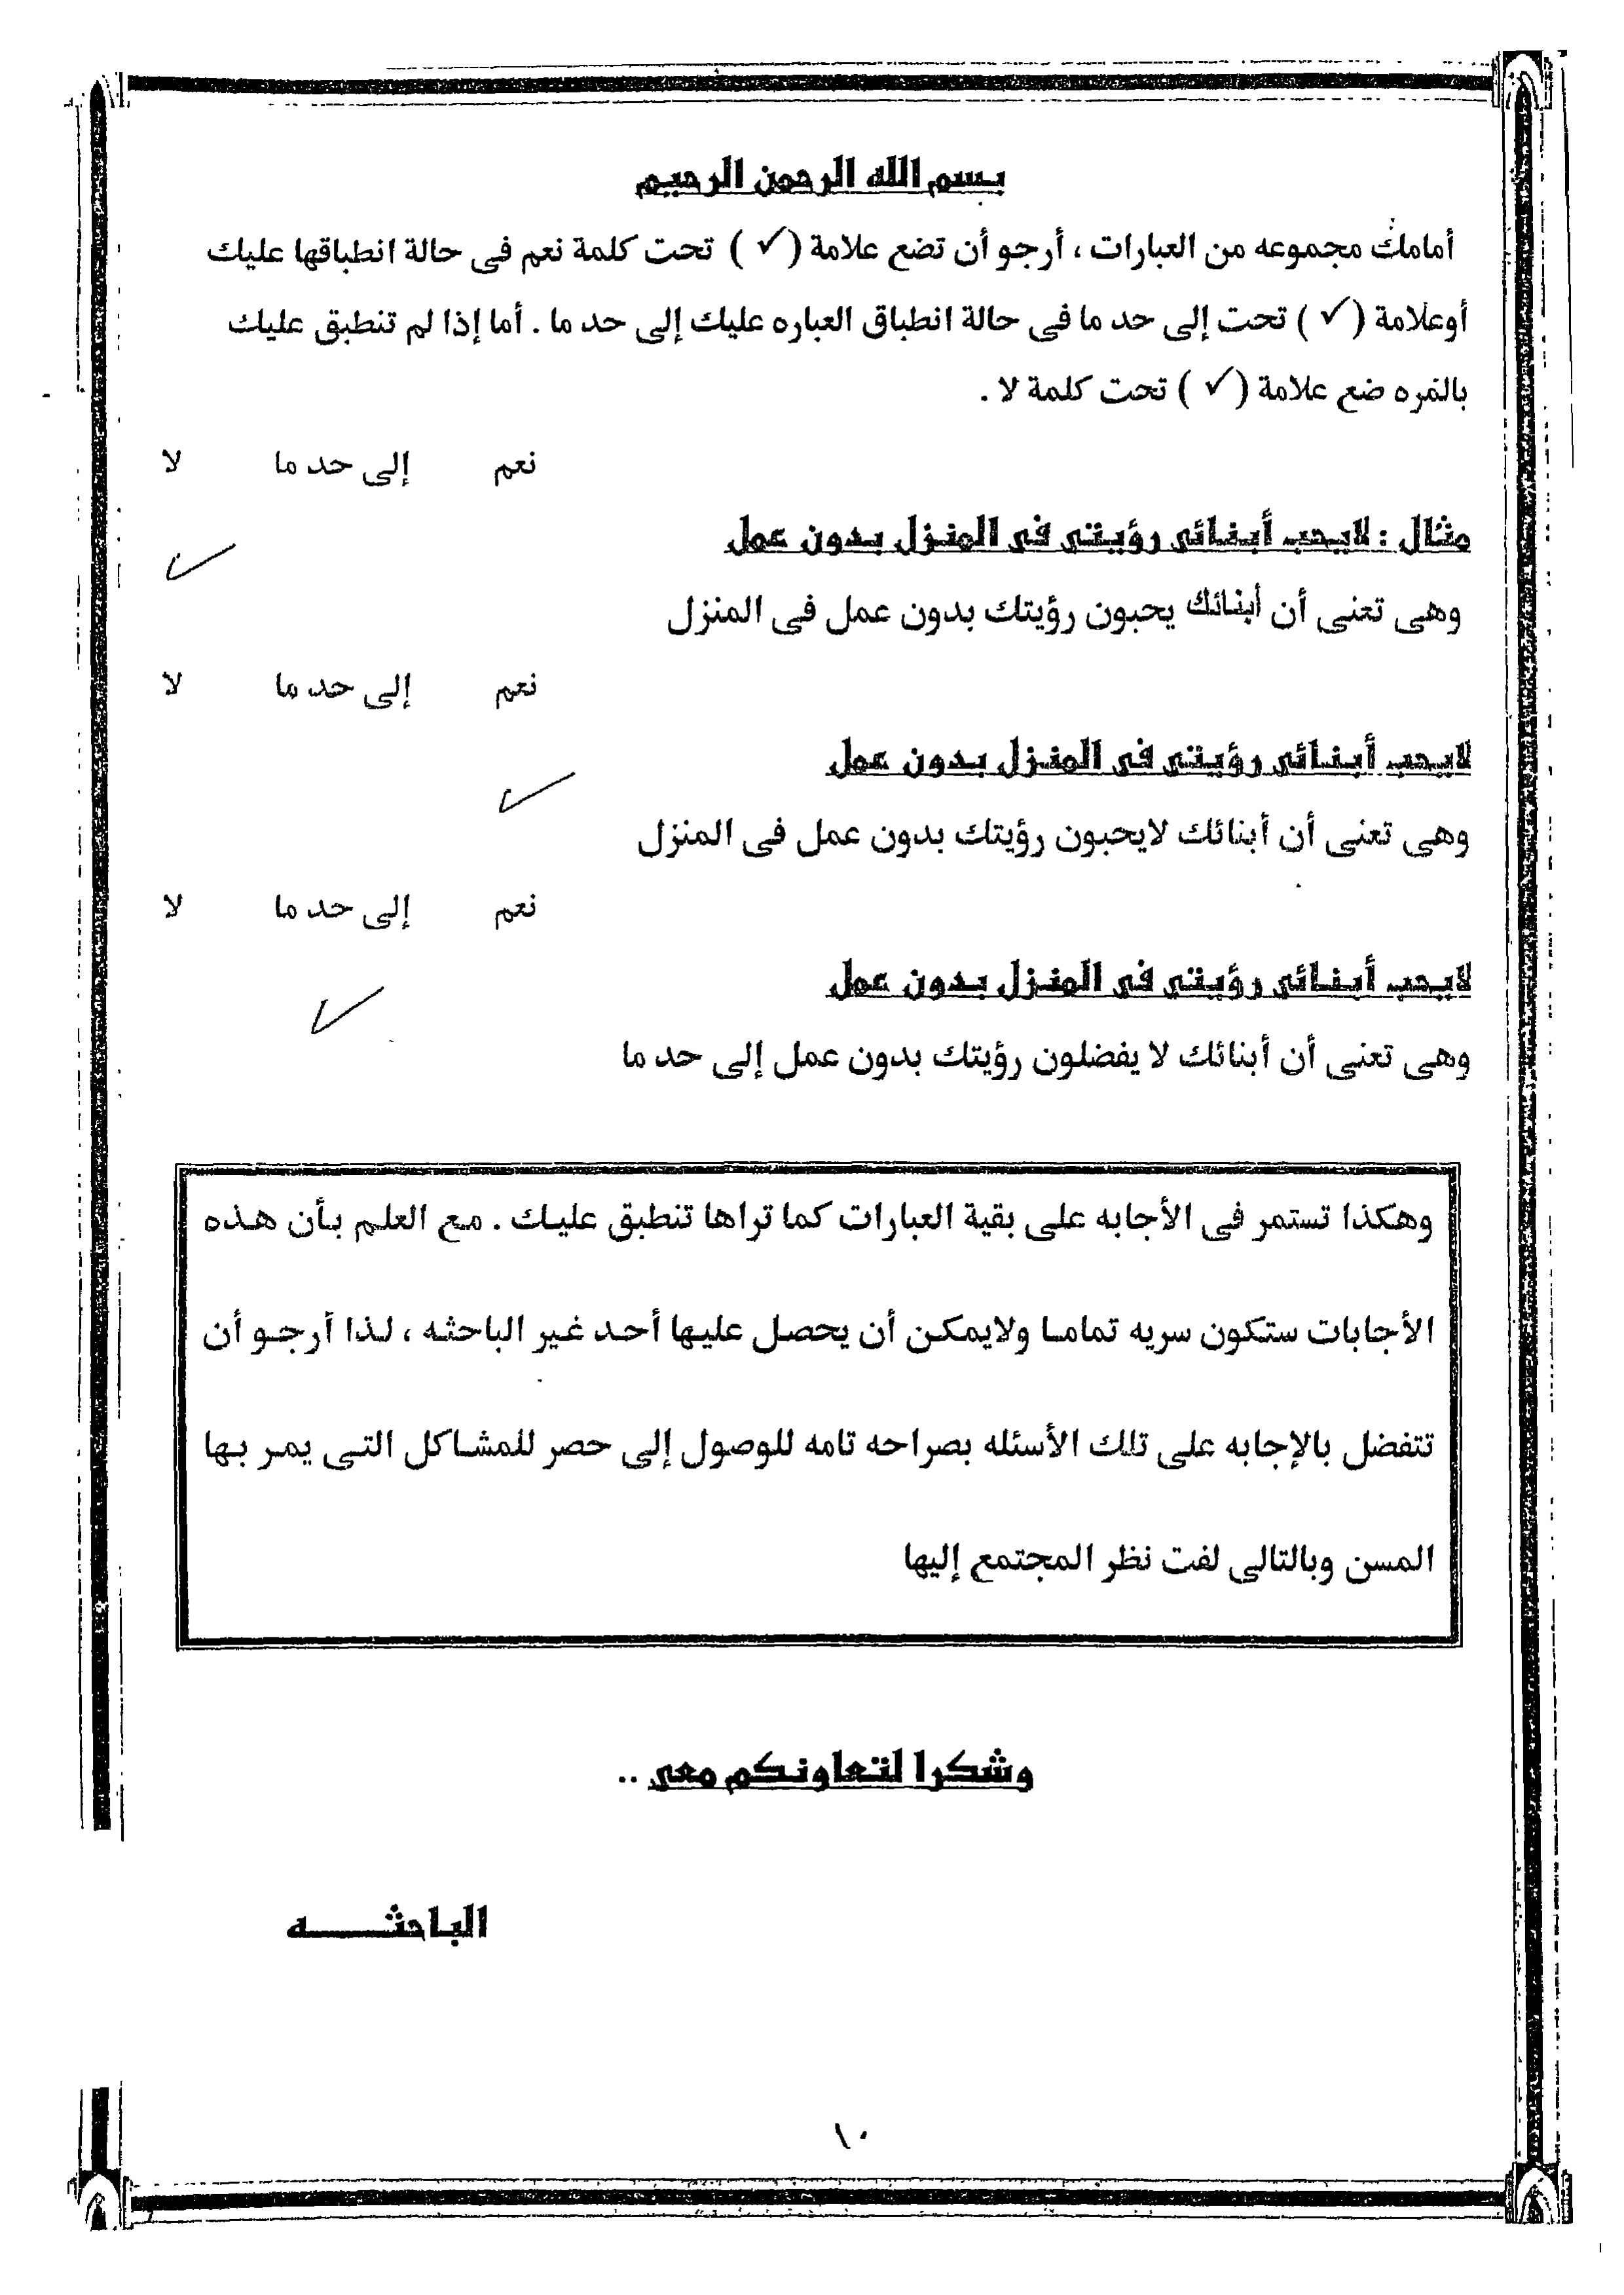 بسم الله الرحمن الرحيم
أمامك مجموعه من العبارات ، أرجو أن تضع علامة ( ✓ ) تحت كلمة نعم فى حالة انطباقها عليك
أوعلامة ( ✓ ) تحت إلى حد ما فى حالة انطباق العباره عليك إلى حد ما . أما إذا لم تنطبق عليك
بالمره ضع علامة ( ✓ ) تحت كلمة لا .
نعم إلى حد ما لا
مثال : لايحب أبنائى رؤيتى فى المنزل بدون عمل ✓
وهى تعنى أن أبنائك يحبون رؤيتك بدون عمل فى المنزل
نعم إلى حد ما لا
لايحب أبنائى رؤيتى فى المنزل بدون عمل ✓
وهى تعنى أن أبنائك لايحبون رؤيتك بدون عمل فى المنزل
نعم إلى حد ما لا
لايحب أبنائى رؤيتى فى المنزل بدون عمل ✓
وهى تعنى أن أبنائك لا يفضلون رؤيتك بدون عمل إلى حد ما
وهكذا تستمر فى الأجابه على بقية العبارات كما تراها تنطبق عليك . مع العلم بأن هذه
الأجابات ستكون سريه تماما ولايمكن أن يحصل عليها أحد غير الباحثه ، لذا أرجو أن
تتفضل بالإجابه على تلك الأسئله بصراحه تامه للوصول إلى حصر للمشاكل التى يمر بها
المسن وبالتالى لفت نظر المجتمع إليها
وشكرا لتعاونكم معى ..
الباحثه
١٠